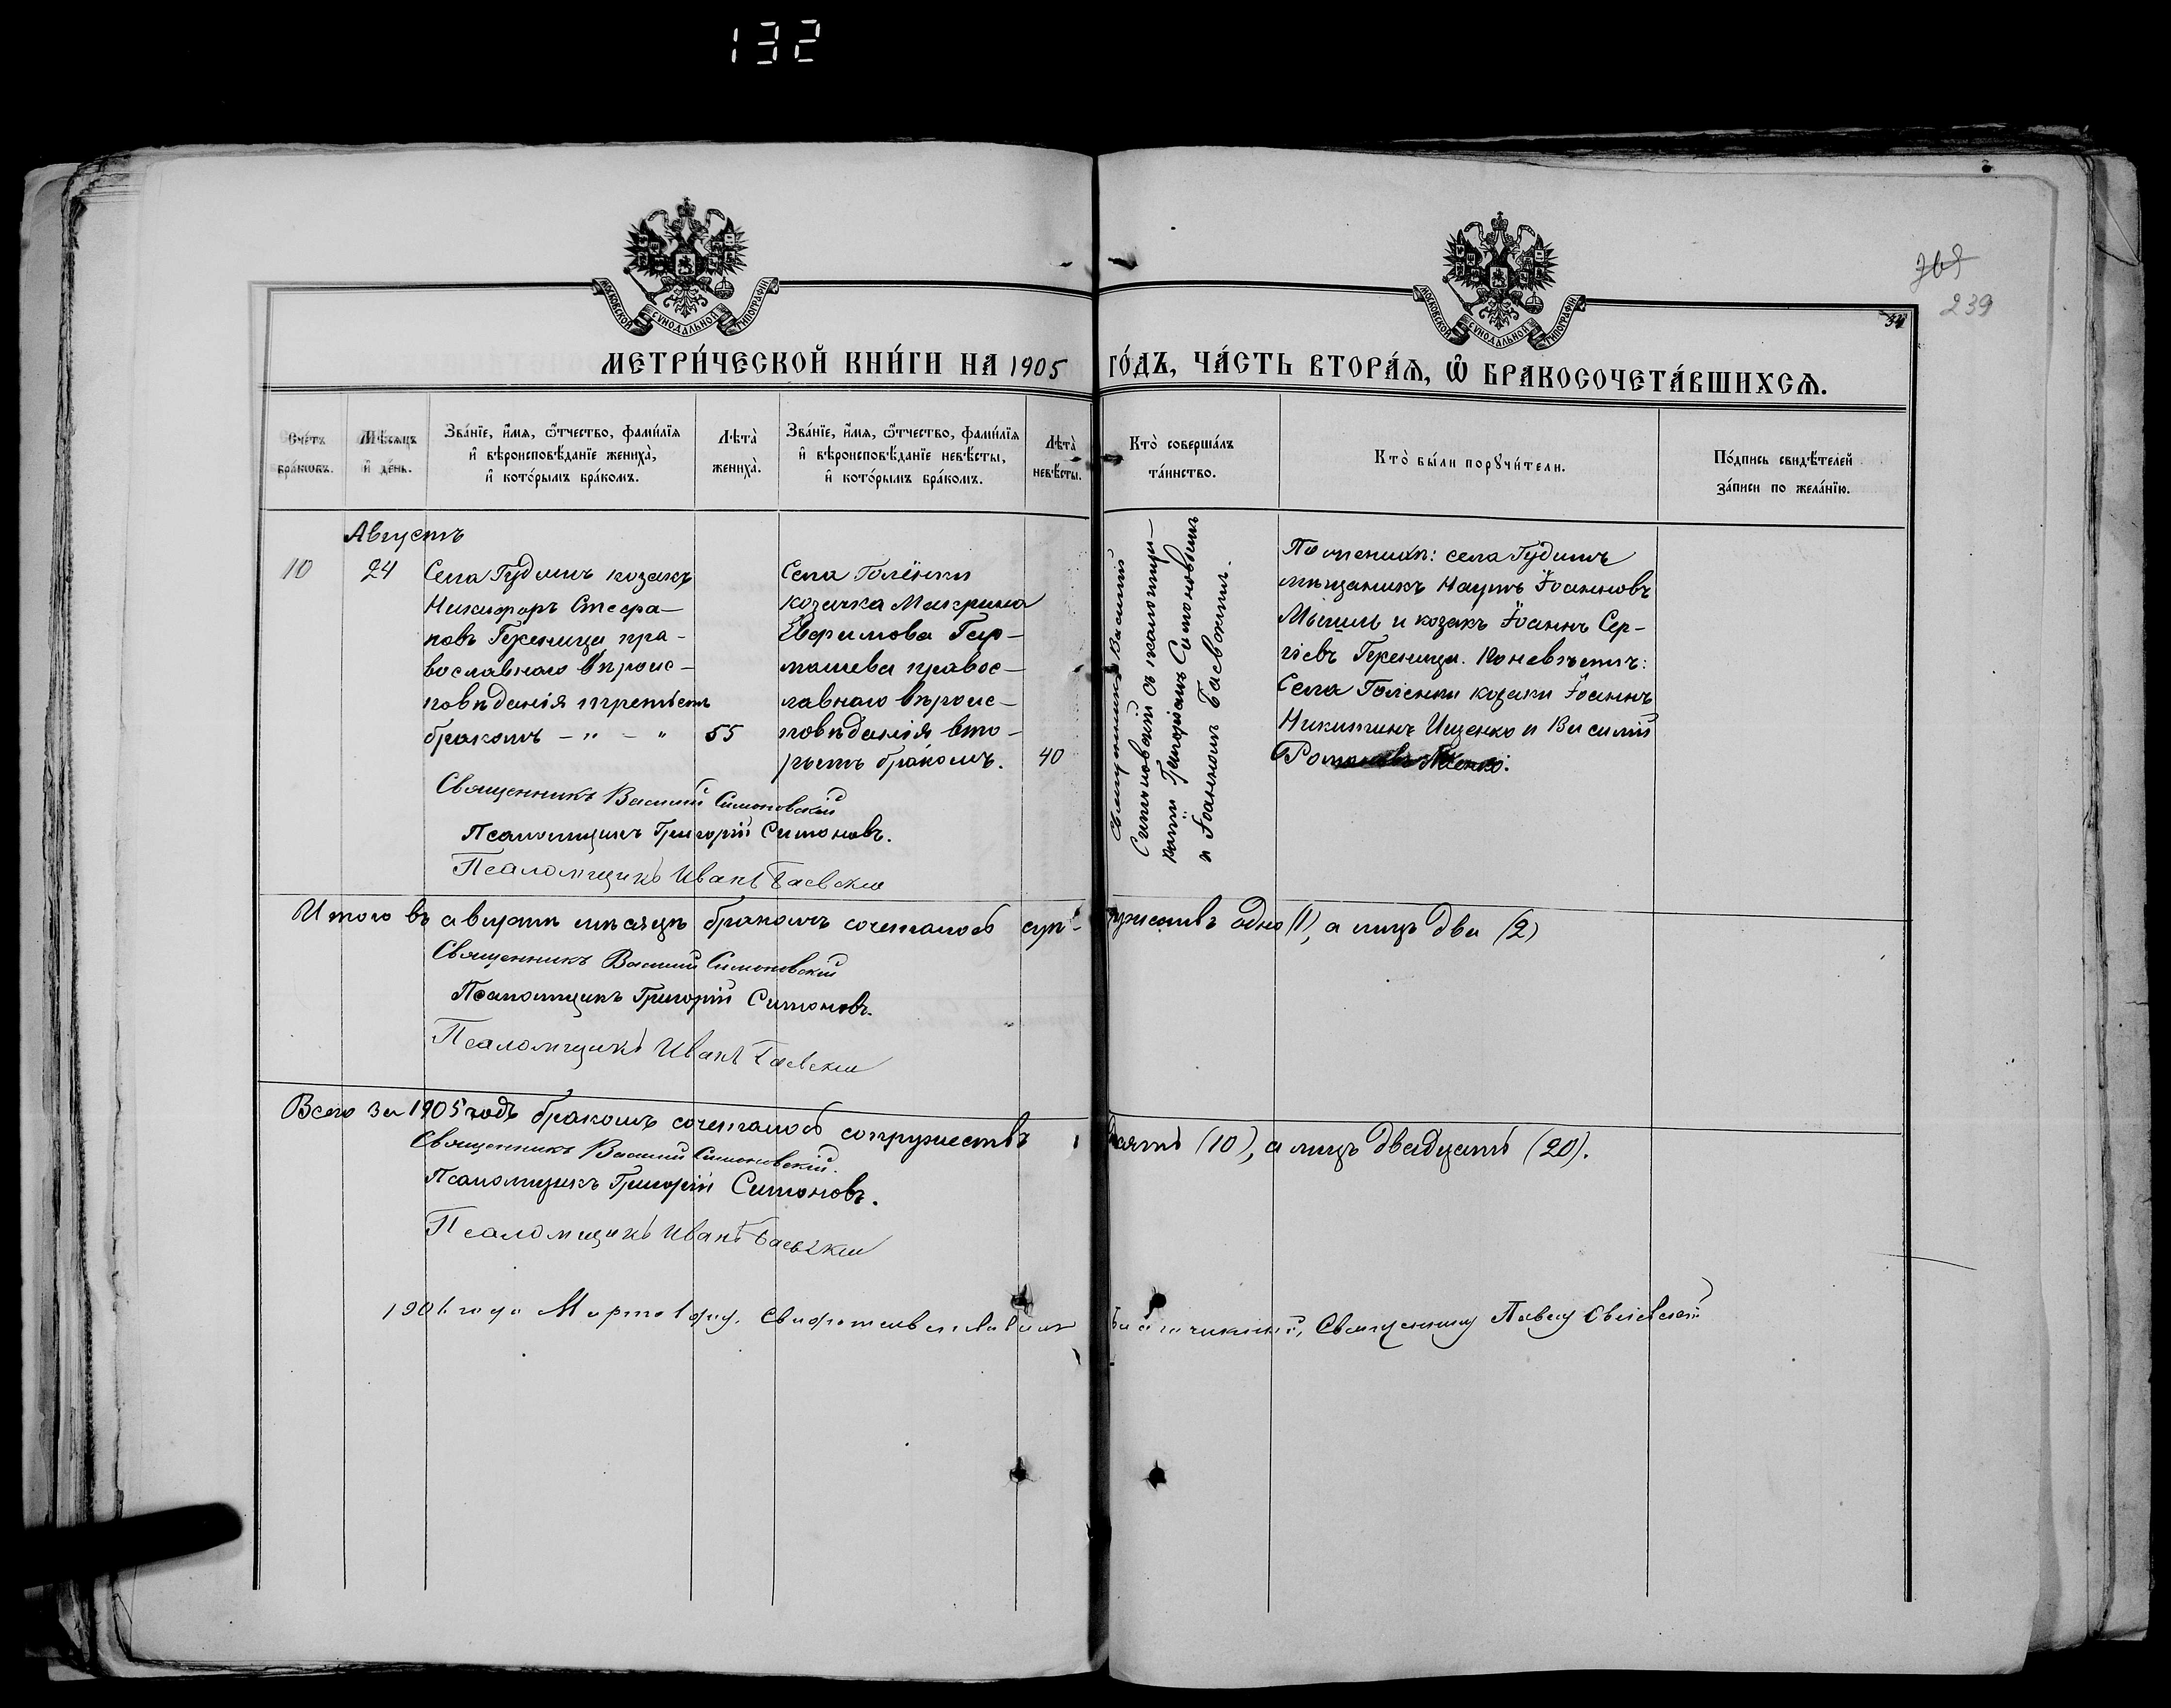 132
769
239
34
МОСКОВСКОЙ СѴНОДАЛЬНОЙ ТИПОГРАФІИ
МОСКОВСКОЙ СѴНОДАЛЬНОЙ ТИПОГРАФІИ
МЕТРИ́ЧЕСКОЙ КНИ́ГИ НА 1905 ГО́ДЪ, ЧА́СТЬ ВТОРА́Ѧ, Ѽ БРАКОСОЧЕТА́ВШИХСѦ.
Сче́тъ бра́ковъ.
Мѣ́сяцъ и҆ де́нь.
Зва́нїе, и҆́мя, ѻ҆́тчество, фами́лїя
и҆ вѣроисповѣ́данїе жениха̀,
и҆ кото́рымъ бра́комъ.
Лѣта̀ жениха̀.
Зва́нїе, и҆́мя, ѻ҆́тчество, фами́лїя
и҆ вѣроисповѣ́данїе невѣ́сты,
и҆ кото́рымъ бра́комъ.
Лѣта̀ невѣ́сты.
Кто̀ соверша́лъ
та́инство.
Кто̀ бы́ли порꙋчи́тели.
По́дпись свидѣ́телей
за́писи по жела́нїю.
Августъ
10
24
Села Гудимъ козакъ
Никифоръ Стефа-
новъ Гуженица пра-
вославнаго вѣроис-
повѣданія третьемъ
бракомъ - " - "
55
Села Голёнки
козачка Макрина
Евфимова Гар-
машева правос-
лавнаго вѣроис-
повѣданія вто-
рымъ бракомъ.
40
Священникъ Василій
Симоновскій съ псаломщи-
ками Григоріемъ Симоновымъ
и Іоанномъ Баевскимъ.
По женихѣ: села Гудимъ
мѣщанинъ Наумъ Іоанновъ
Мышль и козакъ Іоаннъ Сер-
гіевъ Гуженица. По невѣстѣ:
Села Голенки козаки Іоаннъ
Никитинъ Ищенко и Василій
Романовъ
Священникъ Василій Симоновскій
Псаломщикъ Григорій Симоновъ.
Псаломщикъ Иванъ Баевскій
Итого въ августѣ мѣсяцѣ бракомъ сочеталось супружествъ одно (1), а лицъ два (2)
Священникъ Василій Симоновскій
Псаломщикъ Григорій Симоновъ.
Псаломщикъ Иванъ Баевскій
Всего за 1905 годъ бракомъ сочеталось супружествъ десять (10), а лицъ двадцать (20).
Священникъ Василій Симоновскій.
Псаломщикъ Григорій Симоновъ.
Псаломщикъ Иванъ Баевскій
года Марта 1 дня. Свидѣтельствовалъ Священникъ Павелъ